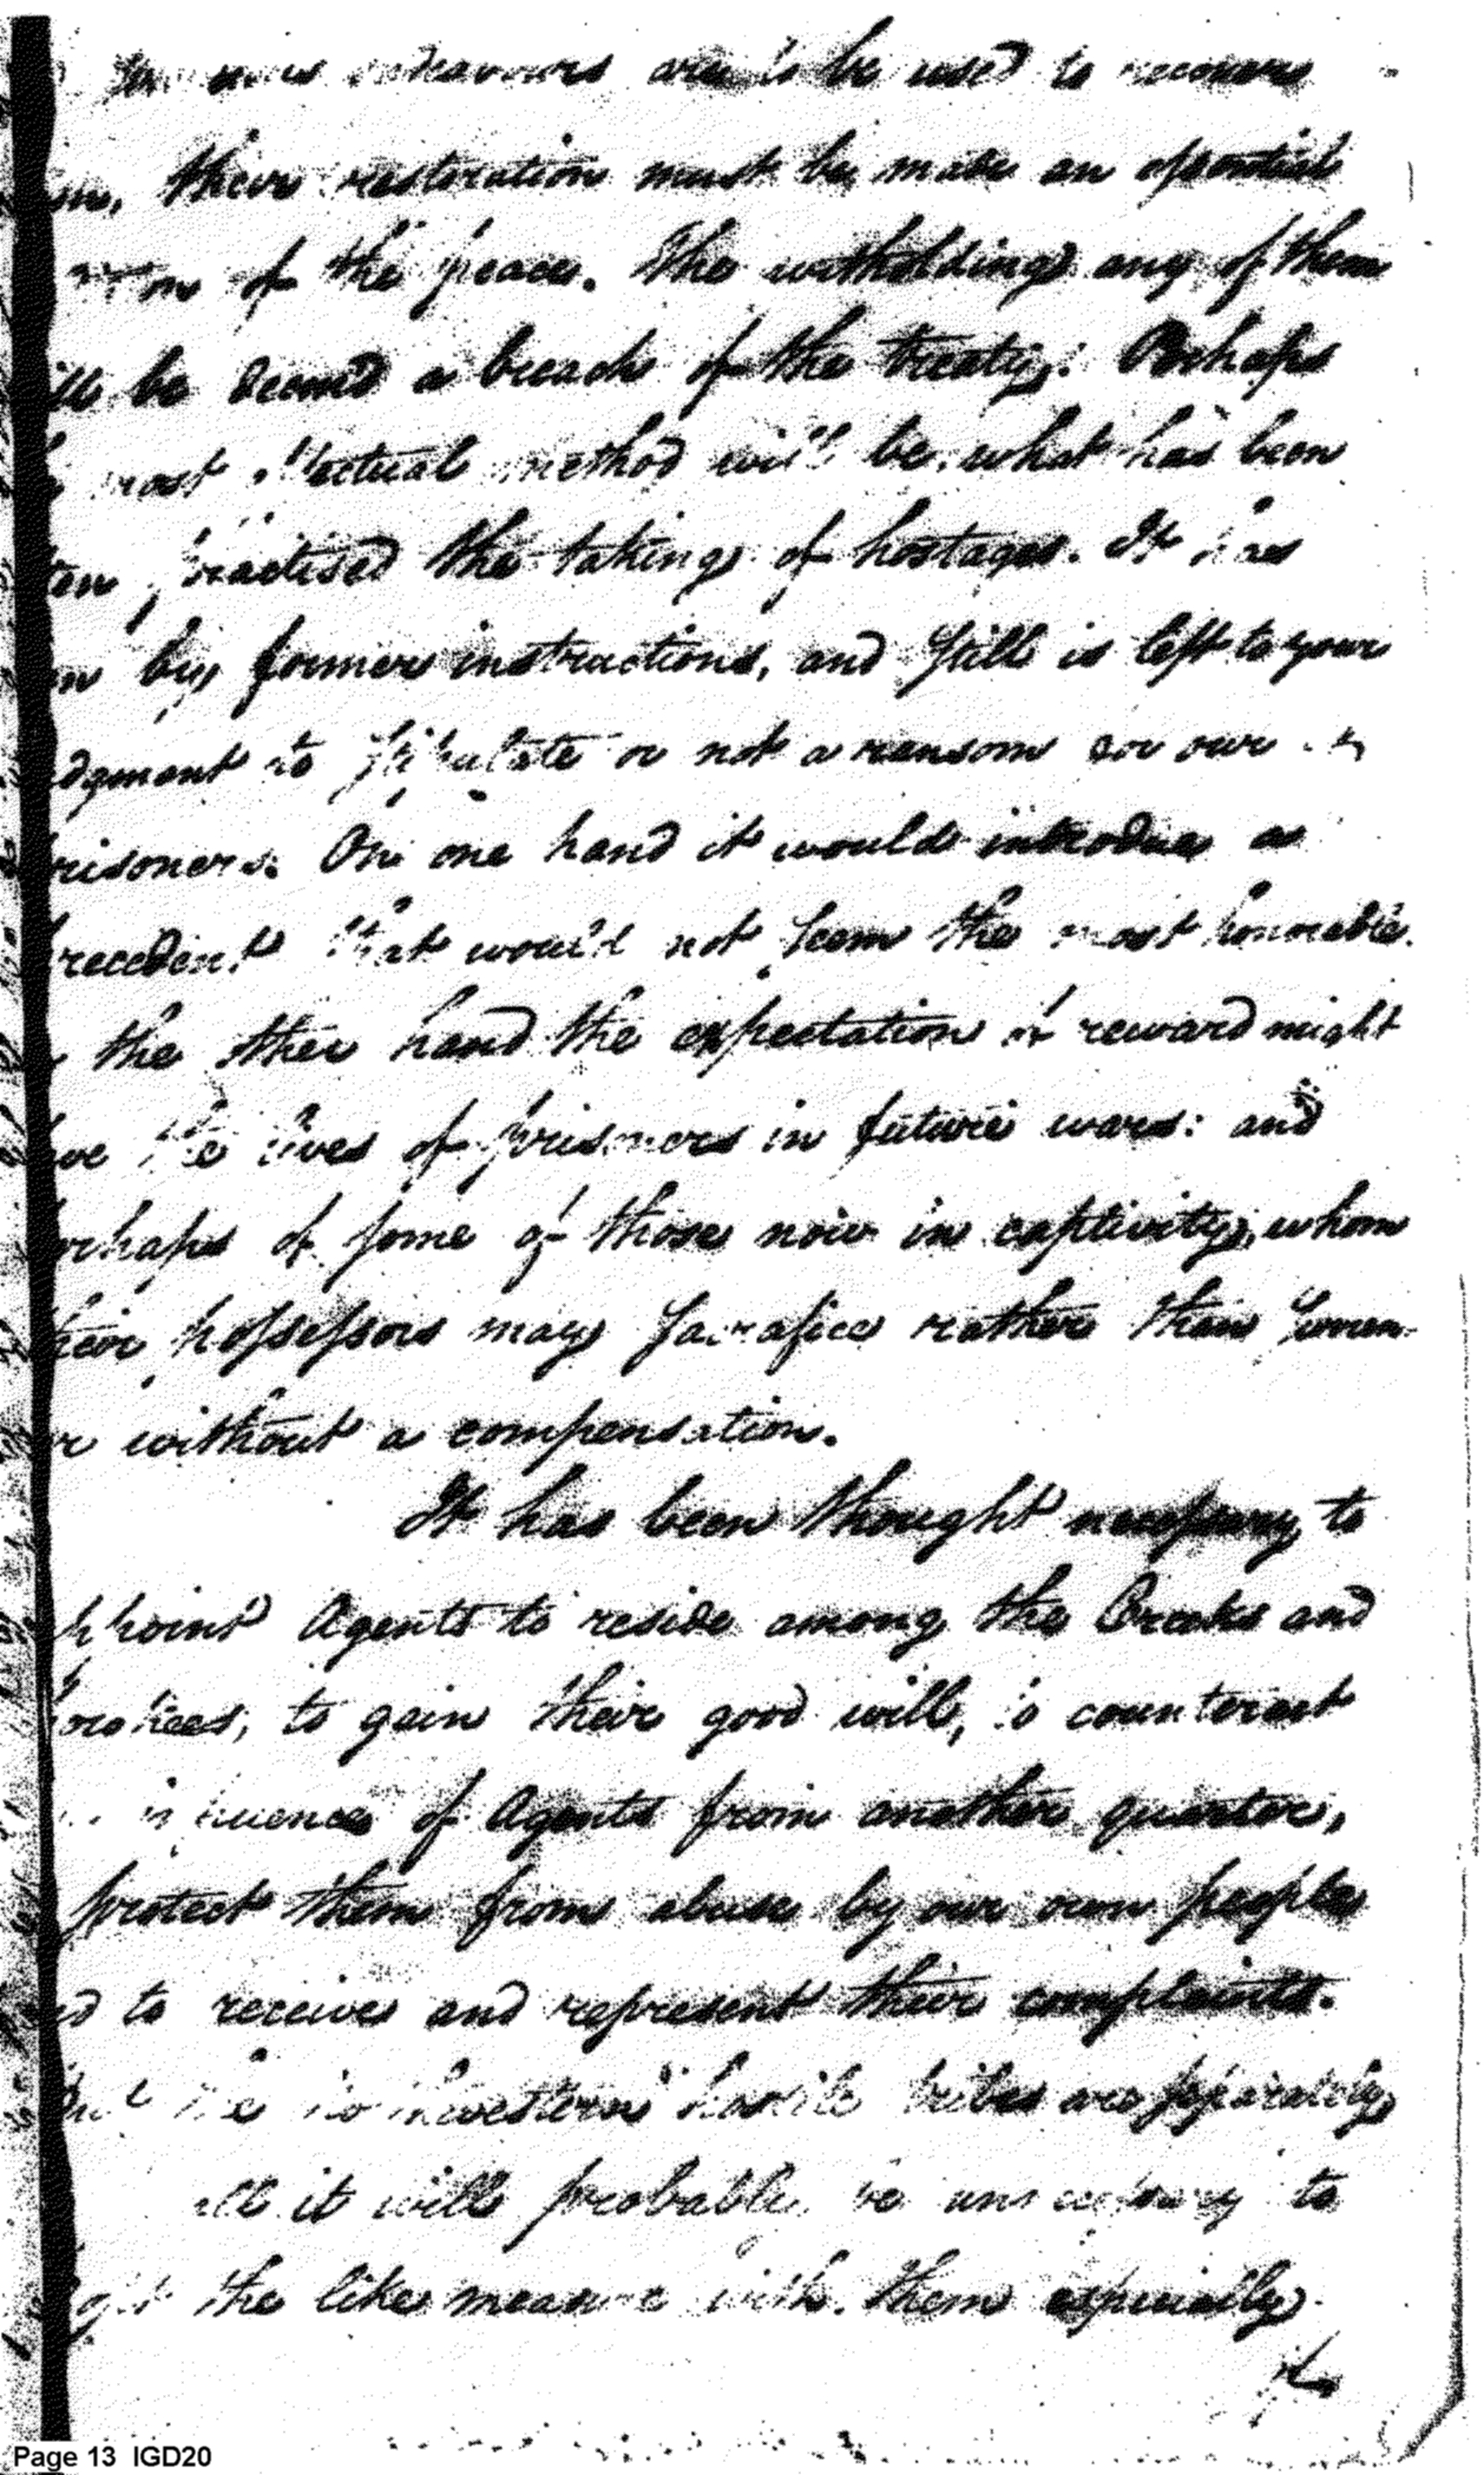 endeavours are to be used to recover
their restoration must be made an essential
of the peace. The witholding any of them
be deemed a breach of the treaty: Perhaps
most effectual method will be, what has been
practised the taking of hostages. It has
by former instructions, and still is left to your
to stipulate or not a ransom for our
risoners. On one hand it would introduce a
recedent that would not seem the most honorable.
the other hand the expectation of reward might
the lives of prisoners in future wars: and
erhaps of some of those now in captivity, whom
their possessors may sacrafice rather than surren-
r without a compensation.
It has been thought necessary to
ppoint Agents to reside among the Creeks and
erokees, to gain their good will, to counteract
influence of Agents from another quarter,
protect them from abuse by our own people
nd to receive and represent their complaints.
But the northwestern hostile tribes are separately
all it will probably be unnecessary to
the like measure with them especially
Page 13 IGD20